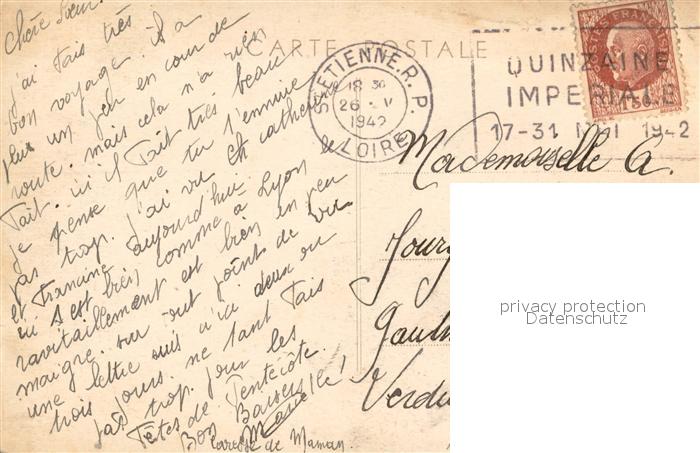 Chère Sœur.
j'ai fais très
bon voyage. il a
plus un peu en cour de
route. mais cela n'a rien
fait. ici il fait très beau
je pense que tu t'ennuie
pas trop. j'ai vu et catherine
et Francine aujourd'hui.
ici s'est bien comme a Lyon
ravitaillement est bien un peu
maigre. sur tout point de vue
une lettre suis d'ici deux ou
trois jours. ne tant fais
pas trop. pour les
fêtes de Pentecôte.
Bon Baiser
Marcelle!
caresse de Maman
CARTE POSTALE
ST ETIENNE. R. P.
18 30
26 - V
1942
LOIRE
QUINZAINE
IMPERIALE
17-31 MAI 1942
POSTES FRANÇAISES
1F50
Mademoiselle A.
Verdu
privacy protection
Datenschutz